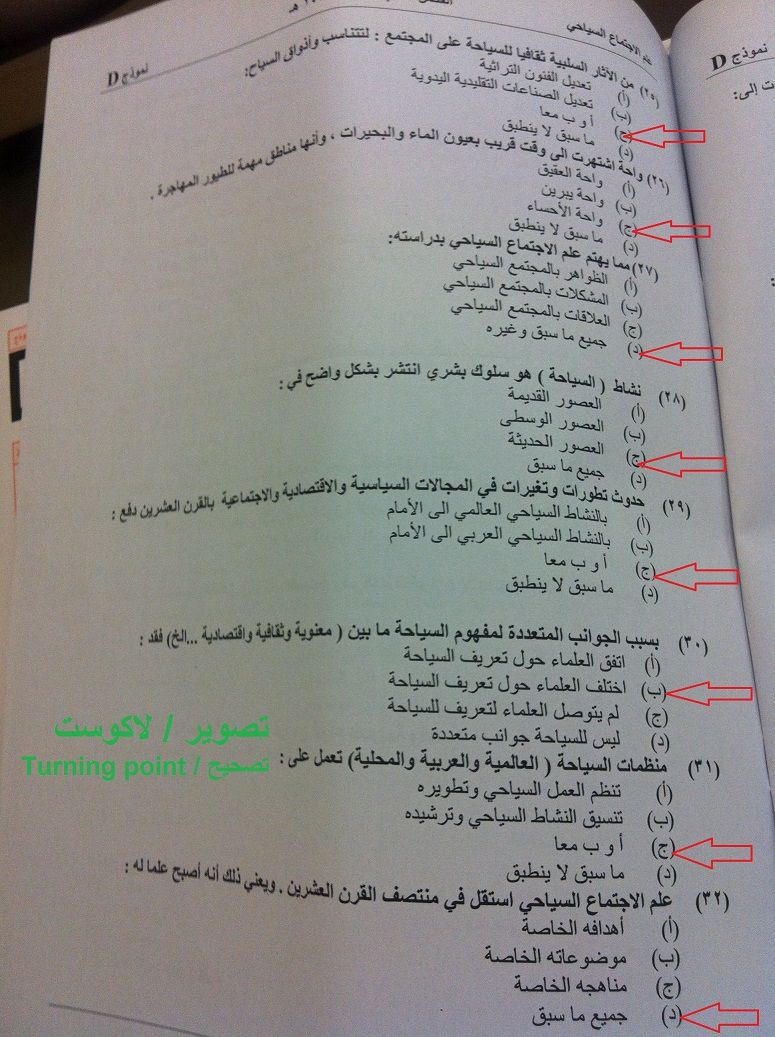 علم الاجتماع السياحي
نموذج D
(٢٥) من الآثار السلبية ثقافيا للسياحة على المجتمع : لتتناسب وأذواق السياح:
(أ) تعديل الفنون التراثية
(ب) تعديل الصناعات التقليدية اليدوية
(ج) أ و ب معا
(د) ما سبق لا ينطبق
(٢٦) واحة اشتهرت الى وقت قريب بعيون الماء والبحيرات ، وأنها مناطق مهمة للطيور المهاجرة .
(أ) واحة العقيق
(ب) واحة يبرين
(ج) واحة الأحساء
(د) ما سبق لا ينطبق
(٢٧) مما يهتم علم الاجتماع السياحي بدراسته:
(أ) الظواهر بالمجتمع السياحي
(ب) المشكلات بالمجتمع السياحي
(ج) العلاقات بالمجتمع السياحي
(د) جميع ما سبق وغيره
(٢٨) نشاط ( السياحة ) هو سلوك بشري انتشر بشكل واضح في :
(أ) العصور القديمة
(ب) العصور الوسطى
(ج) العصور الحديثة
(د) جميع ما سبق
(٢٩) حدوث تطورات وتغيرات في المجالات السياسية والاقتصادية والاجتماعية بالقرن العشرين دفع :
(أ) بالنشاط السياحي العالمي الى الأمام
(ب) بالنشاط السياحي العربي الى الأمام
(ج) أ و ب معا
(د) ما سبق لا ينطبق
(٣٠) بسبب الجوانب المتعددة لمفهوم السياحة ما بين ( معنوية وثقافية واقتصادية ...الخ) فقد :
(أ) اتفق العلماء حول تعريف السياحة
(ب) اختلف العلماء حول تعريف السياحة
(ج) لم يتوصل العلماء لتعريف للسياحة
(د) ليس للسياحة جوانب متعددة
(٣١) منظمات السياحة ( العالمية والعربية والمحلية) تعمل على :
(أ) تنظم العمل السياحي وتطويره
(ب) تنسيق النشاط السياحي وترشيده
(ج) أ و ب معا
(د) ما سبق لا ينطبق
(٣٢) علم الاجتماع السياحي استقل في منتصف القرن العشرين . ويعني ذلك أنه أصبح علما له :
(أ) أهدافه الخاصة
(ب) موضوعاته الخاصة
(ج) مناهجه الخاصة
(د) جميع ما سبق
تصوير / لاكوست
تصحيح / Turning point
نموذج D
ت إلى: